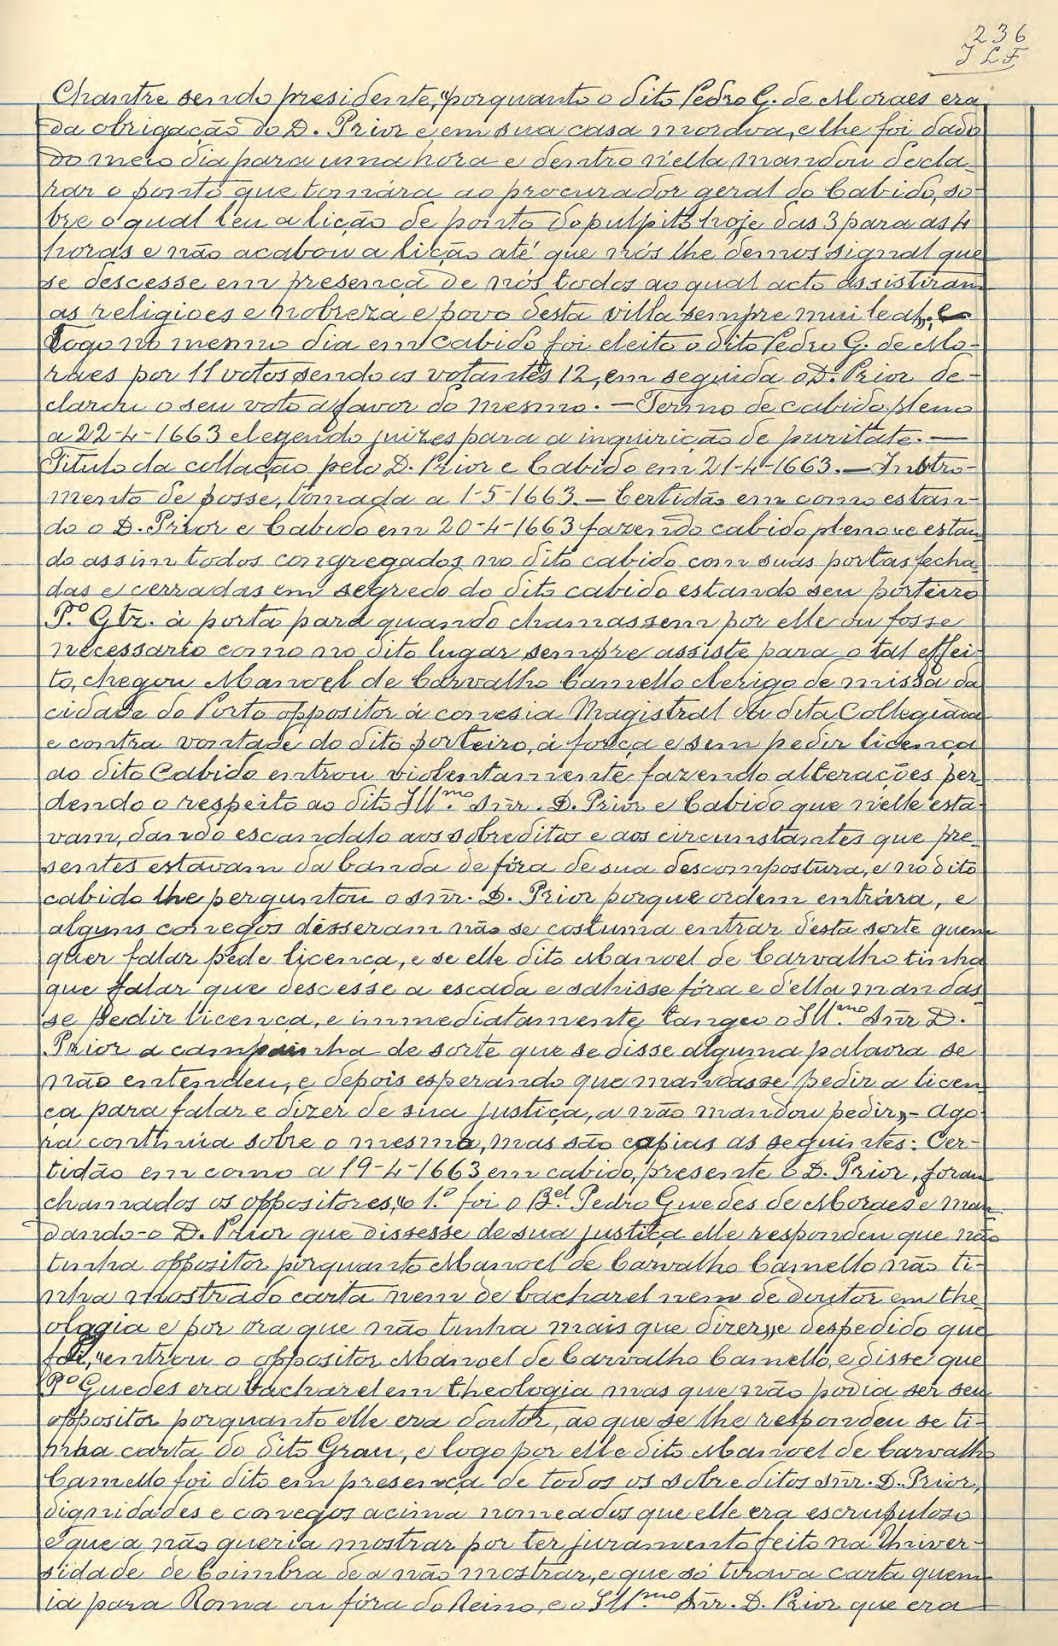 236
J L F
Chantre sendo presidente, "porquanto o dito Pedro G. de Moraes era
da obrigação do D. Prior e em sua casa morava, e lhe foi dado
do meio dia para uma hora e dentro n'ella mandou decla-
rar o ponto que tomára ao procurador geral do Cabido, so-
bre o qual leu a lição de ponto do pulpito hoje das 3 para as 4
horas e não acabou a lição até que nós lhe demos signal que
se descesse em presença de nós todos ao qual acto assistiram
as religiões e nobreza e povo desta villa sempre mui leal", e
logo no mesmo dia em cabido foi eleito o dito Pedro G. de Mo-
raes por 11 votos sendo os votantes 12, em seguida o D. Prior de-
clarou o seu voto a favor do mesmo. — Termo de cabido pleno
a 22-4-1663 elegendo juizes para a inquirição de puritate. —
Titulo da collação pelo D. Prior e Cabido em 21-4-1663. — Instro-
mento de posse, tomada a 1-5-1663. — Certidão em como estan-
do o D. Prior e Cabido em 20-4-1663 fazendo cabido pleno "e estan
do assim todos congregados no dito cabido com suas portas fecha-
das e cerradas em segredo do dito cabido estando seu porteiro
P.º Glz. á porta para quando chamassem por elle ou fosse
necessario como no dito lugar sempre assiste para o tal effei-
to, chegou Manoel de Carvalho Camello clerigo de missa da
cidade do Porto oppositor á conesia Magistral da dita Collegiada
e contra vontade do dito porteiro, á força e sem pedir licença
ao dito Cabido entrou violentamente fazendo alterações per-
dendo o respeito ao dito Ill.mo Snr. D. Prior e Cabido que n'elle esta-
vam, dando escandalo aos sobreditos e aos circumstantes que pre-
sentes estavam da banda de fóra de sua descompostura, e no dito
cabido lhe perguntou o snr. D. Prior porque ordem entrára, e
alguns conegos disseram não se costuma entrar desta sorte quem
quer falar pede licença, e se elle dito Manoel de Carvalho tinha
que falar que descesse a escada e sahisse fóra e d'ella mandas-
se pedir licença, e immediatamente tangeo o Ill.mo Snr D.
Prior a campainha de sorte que se disse alguma palavra se
não entendeu, e depois esperando que mandasse pedir a licen
ça para falar e dizer de sua justiça, a não mandou pedir", - ago-
ra continúa sobre o mesmo, mas são copias as seguintes: Cer-
tidão em como a 19-4-1663 em cabido, presente o D. Prior, foram
chamados os oppositores, "o 1.º foi o B.el Pedro Guedes de Moraes e man
dando-o D. Prior que dissesse de sua justiça elle respondeu que não
tinha oppositor porquanto Manoel de Carvalho Camello não ti-
nha mostrado carta nem de bacharel nem de doutor em the-
ologia e por ora que não tinha mais que dizer", e despedido que
foi, "entrou o oppositor Manoel de Carvalho Camello, e disse que
P.º Guedes era bacharel em theologia mas que não podia ser seu
oppositor porquanto elle era doutor, ao que se lhe respondeu se ti-
nha carta do dito Grau, e logo por elle dito Manoel de Carvalho
Camello foi dito em presença de todos os sobreditos snr. D. Prior,
dignidades e conegos acima nomeados que elle era escrupuloso
e que a não queria mostrar por ter juramento feito na Univer-
sidade de Coimbra de a não mostrar, e que só tirava carta quem
ia para Roma ou fóra do Reino, e o Ill.mo Snr. D. Prior que era